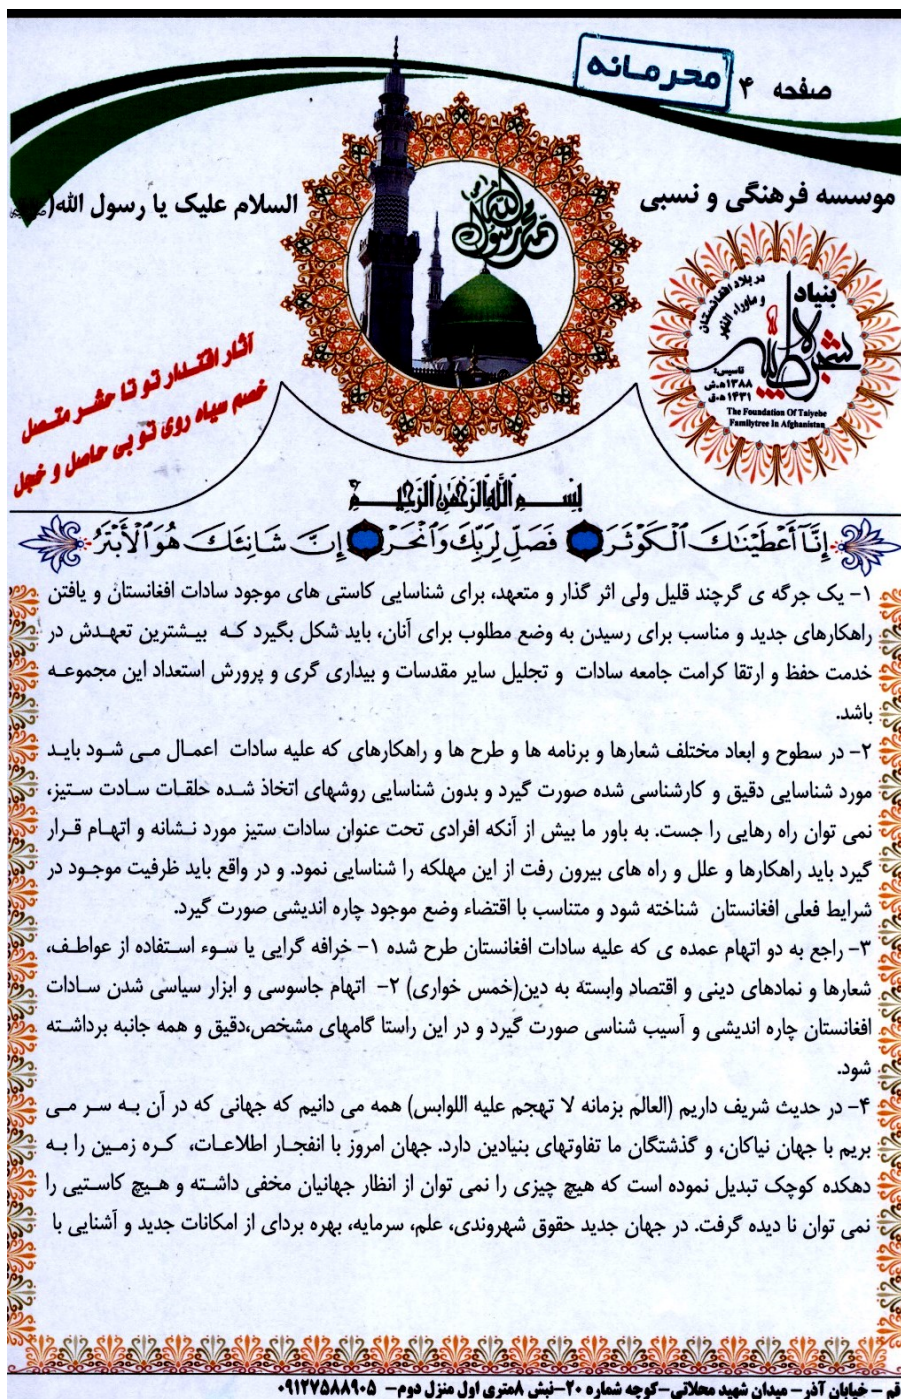 صفحه ۴
محرمانه
موسسه فرهنگی و نسبی
السلام علیک یا رسول الله
محمد رسول الله
بنیاد
در بلاد افغانستان
و ماوراء النهر
شجره طیبه
تاسیس:
۱۳۸۸ه.ش
۱۴۳۱ه.ق
The Foundation Of Taiyebe
Familytree In Afghanistan
آثار اقتدار تو تا حشر متصل
خصم سیاه روی تو بی حاصل و خجل
بسم الله الرحمن الرحیم
إِنَّا أَعْطَيْنَاكَ الْكَوْثَرَ فَصَلِّ لِرَبِّكَ وَانْحَرْ إِنَّ شَانِئَكَ هُوَ الْأَبْتَرُ
۱- یک جرگه ی گرچند قلیل ولی اثر گذار و متعهد، برای شناسایی کاستی های موجود سادات افغانستان و یافتن
راهکارهای جدید و مناسب برای رسیدن به وضع مطلوب برای آنان، باید شکل بگیرد که بیشترین تعهدش در
خدمت حفظ و ارتقا کرامت جامعه سادات و تجلیل سایر مقدسات و بیداری گری و پرورش استعداد این مجموعه
باشد.
۲- در سطوح و ابعاد مختلف شعارها و برنامه ها و طرح ها و راهکارهای که علیه سادات اعمال می شود باید
مورد شناسایی دقیق و کارشناسی شده صورت گیرد و بدون شناسایی روشهای اتخاذ شده حلقات سادت ستیز،
نمی توان راه رهایی را جست. به باور ما بیش از آنکه افرادی تحت عنوان سادات ستیز مورد نشانه و اتهام قرار
گیرد باید راهکارها و علل و راه های بیرون رفت از این مهلکه را شناسایی نمود. و در واقع باید ظرفیت موجود در
شرایط فعلی افغانستان شناخته شود و متناسب با اقتضاء وضع موجود چاره اندیشی صورت گیرد.
۳- راجع به دو اتهام عمده ی که علیه سادات افغانستان طرح شده ۱- خرافه گرایی یا سوء استفاده از عواطف،
شعارها و نمادهای دینی و اقتصاد وابسته به دین(خمس خواری) ۲- اتهام جاسوسی و ابزار سیاسی شدن سادات
افغانستان چاره اندیشی و آسیب شناسی صورت گیرد و در این راستا گامهای مشخص،دقیق و همه جانبه برداشته
شود.
۴- در حدیث شریف داریم (العالم بزمانه لا تهجم علیه اللوابس) همه می دانیم که جهانی که در آن به سر می
بریم با جهان نیاکان، و گذشتگان ما تفاوتهای بنیادین دارد. جهان امروز با انفجار اطلاعات، کره زمین را به
دهکده کوچک تبدیل نموده است که هیچ چیزی را نمی توان از انظار جهانیان مخفی داشته و هیچ کاستیی را
نمی توان نا دیده گرفت. در جهان جدید حقوق شهروندی، علم، سرمایه، بهره بردای از امکانات جدید و آشنایی با
قم - خیابان آذر- میدان شهید محلاتی-کوچه شماره ۲۰-نبش ۸متری اول منزل دوم- ۰۹۱۲۷۵۸۸۹۰۵